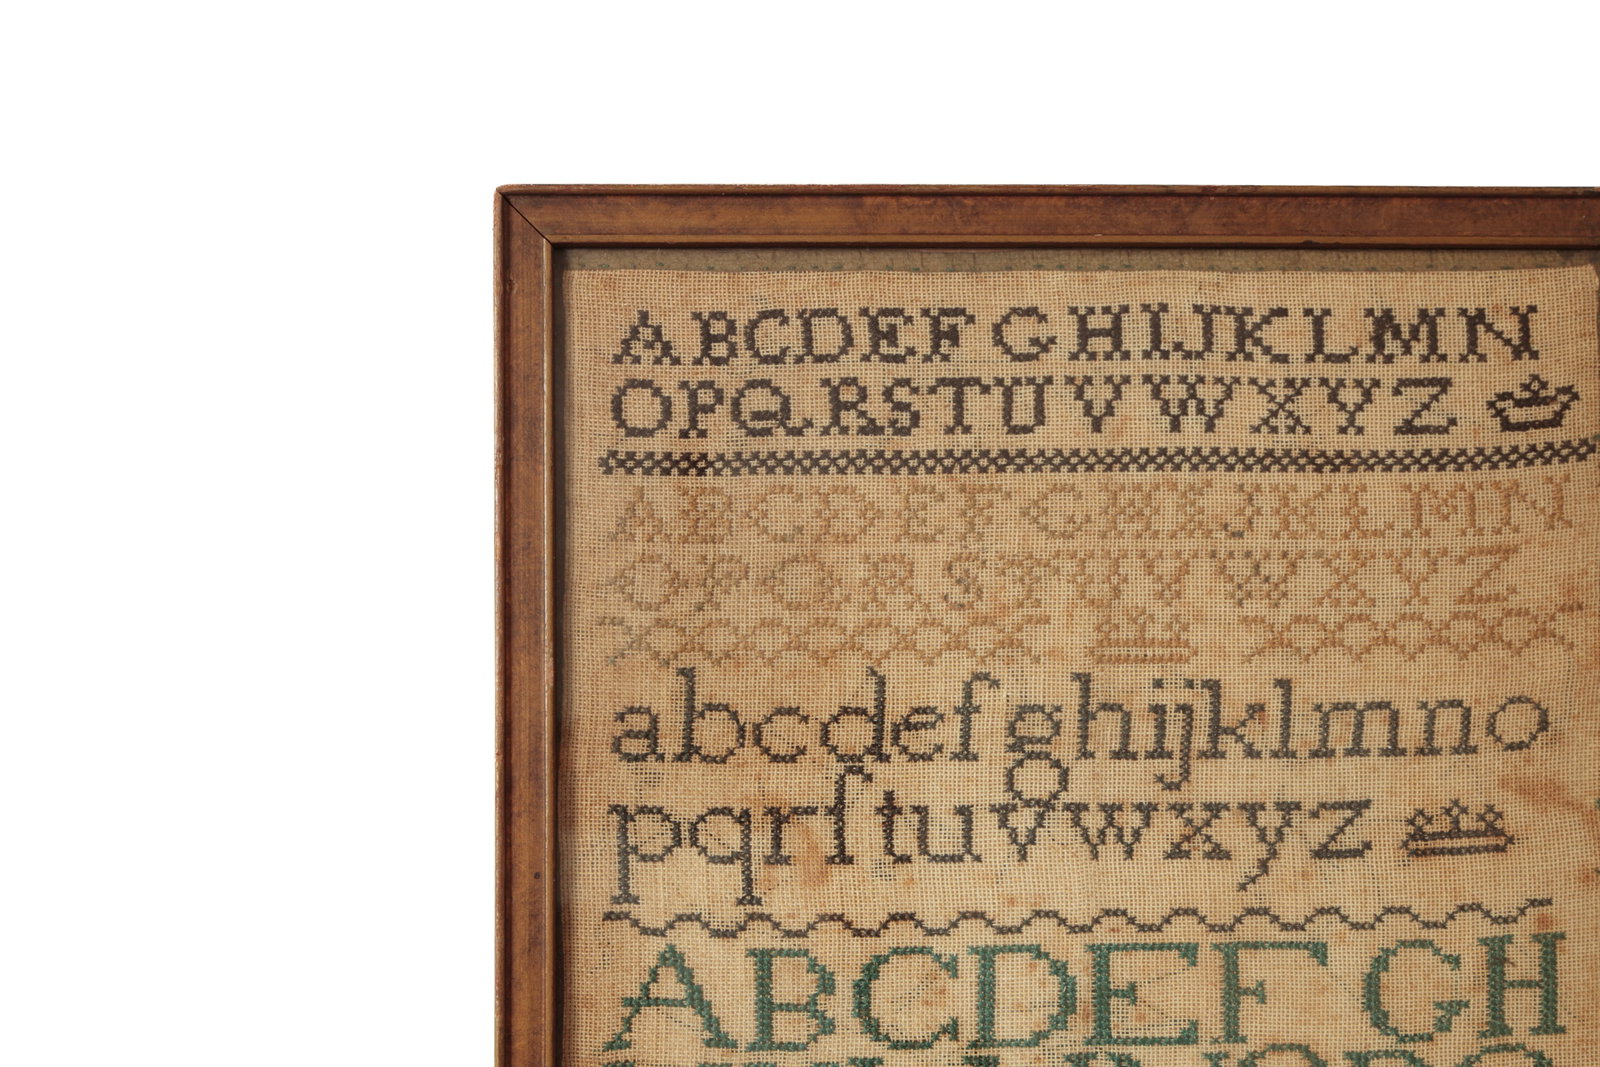 ABCDEFGHIJKLMN
OPQRSTUVWXYZ
ABCDEFGHIJKLMN
OPQRSTUVWXYZ
abcdefghijklmno
pqrſtuvwxyz
ABCDEFGH